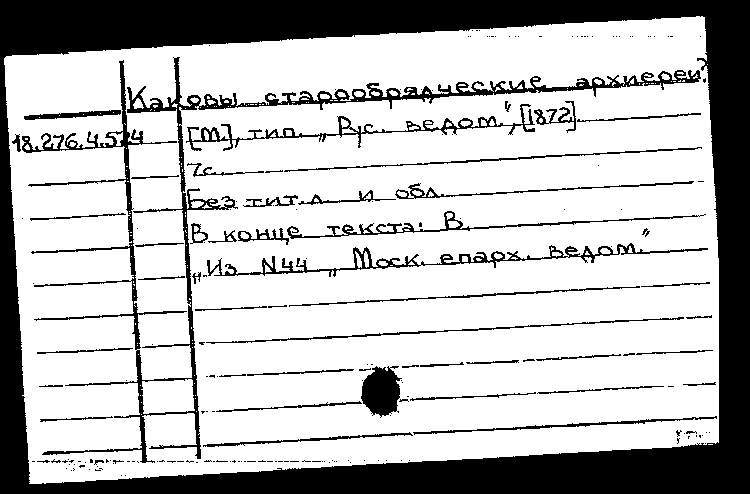 Каковы старообрядческие архиереи?
18.276.4.574 [М.], тип. „Рус. ведом.", [1872].
7с.
Без тит.л. и обл.
В конце текста: В.
„Из N44 „Моск. епарх. ведом."